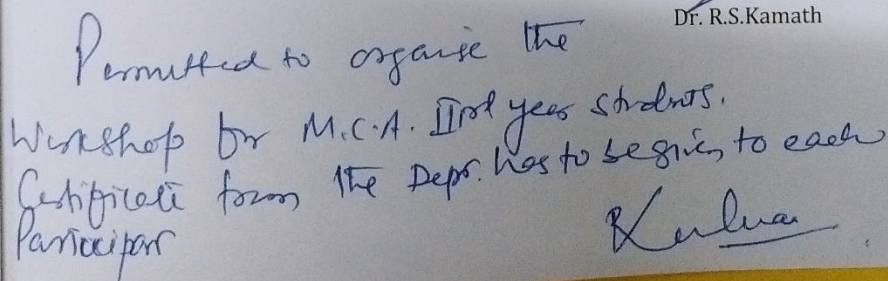 Dr. R.S.Kamath
Permitted to organise the
Workshop for M.C.A. IInd year students.
Certificate from the Dept. has to be given to each
Participant